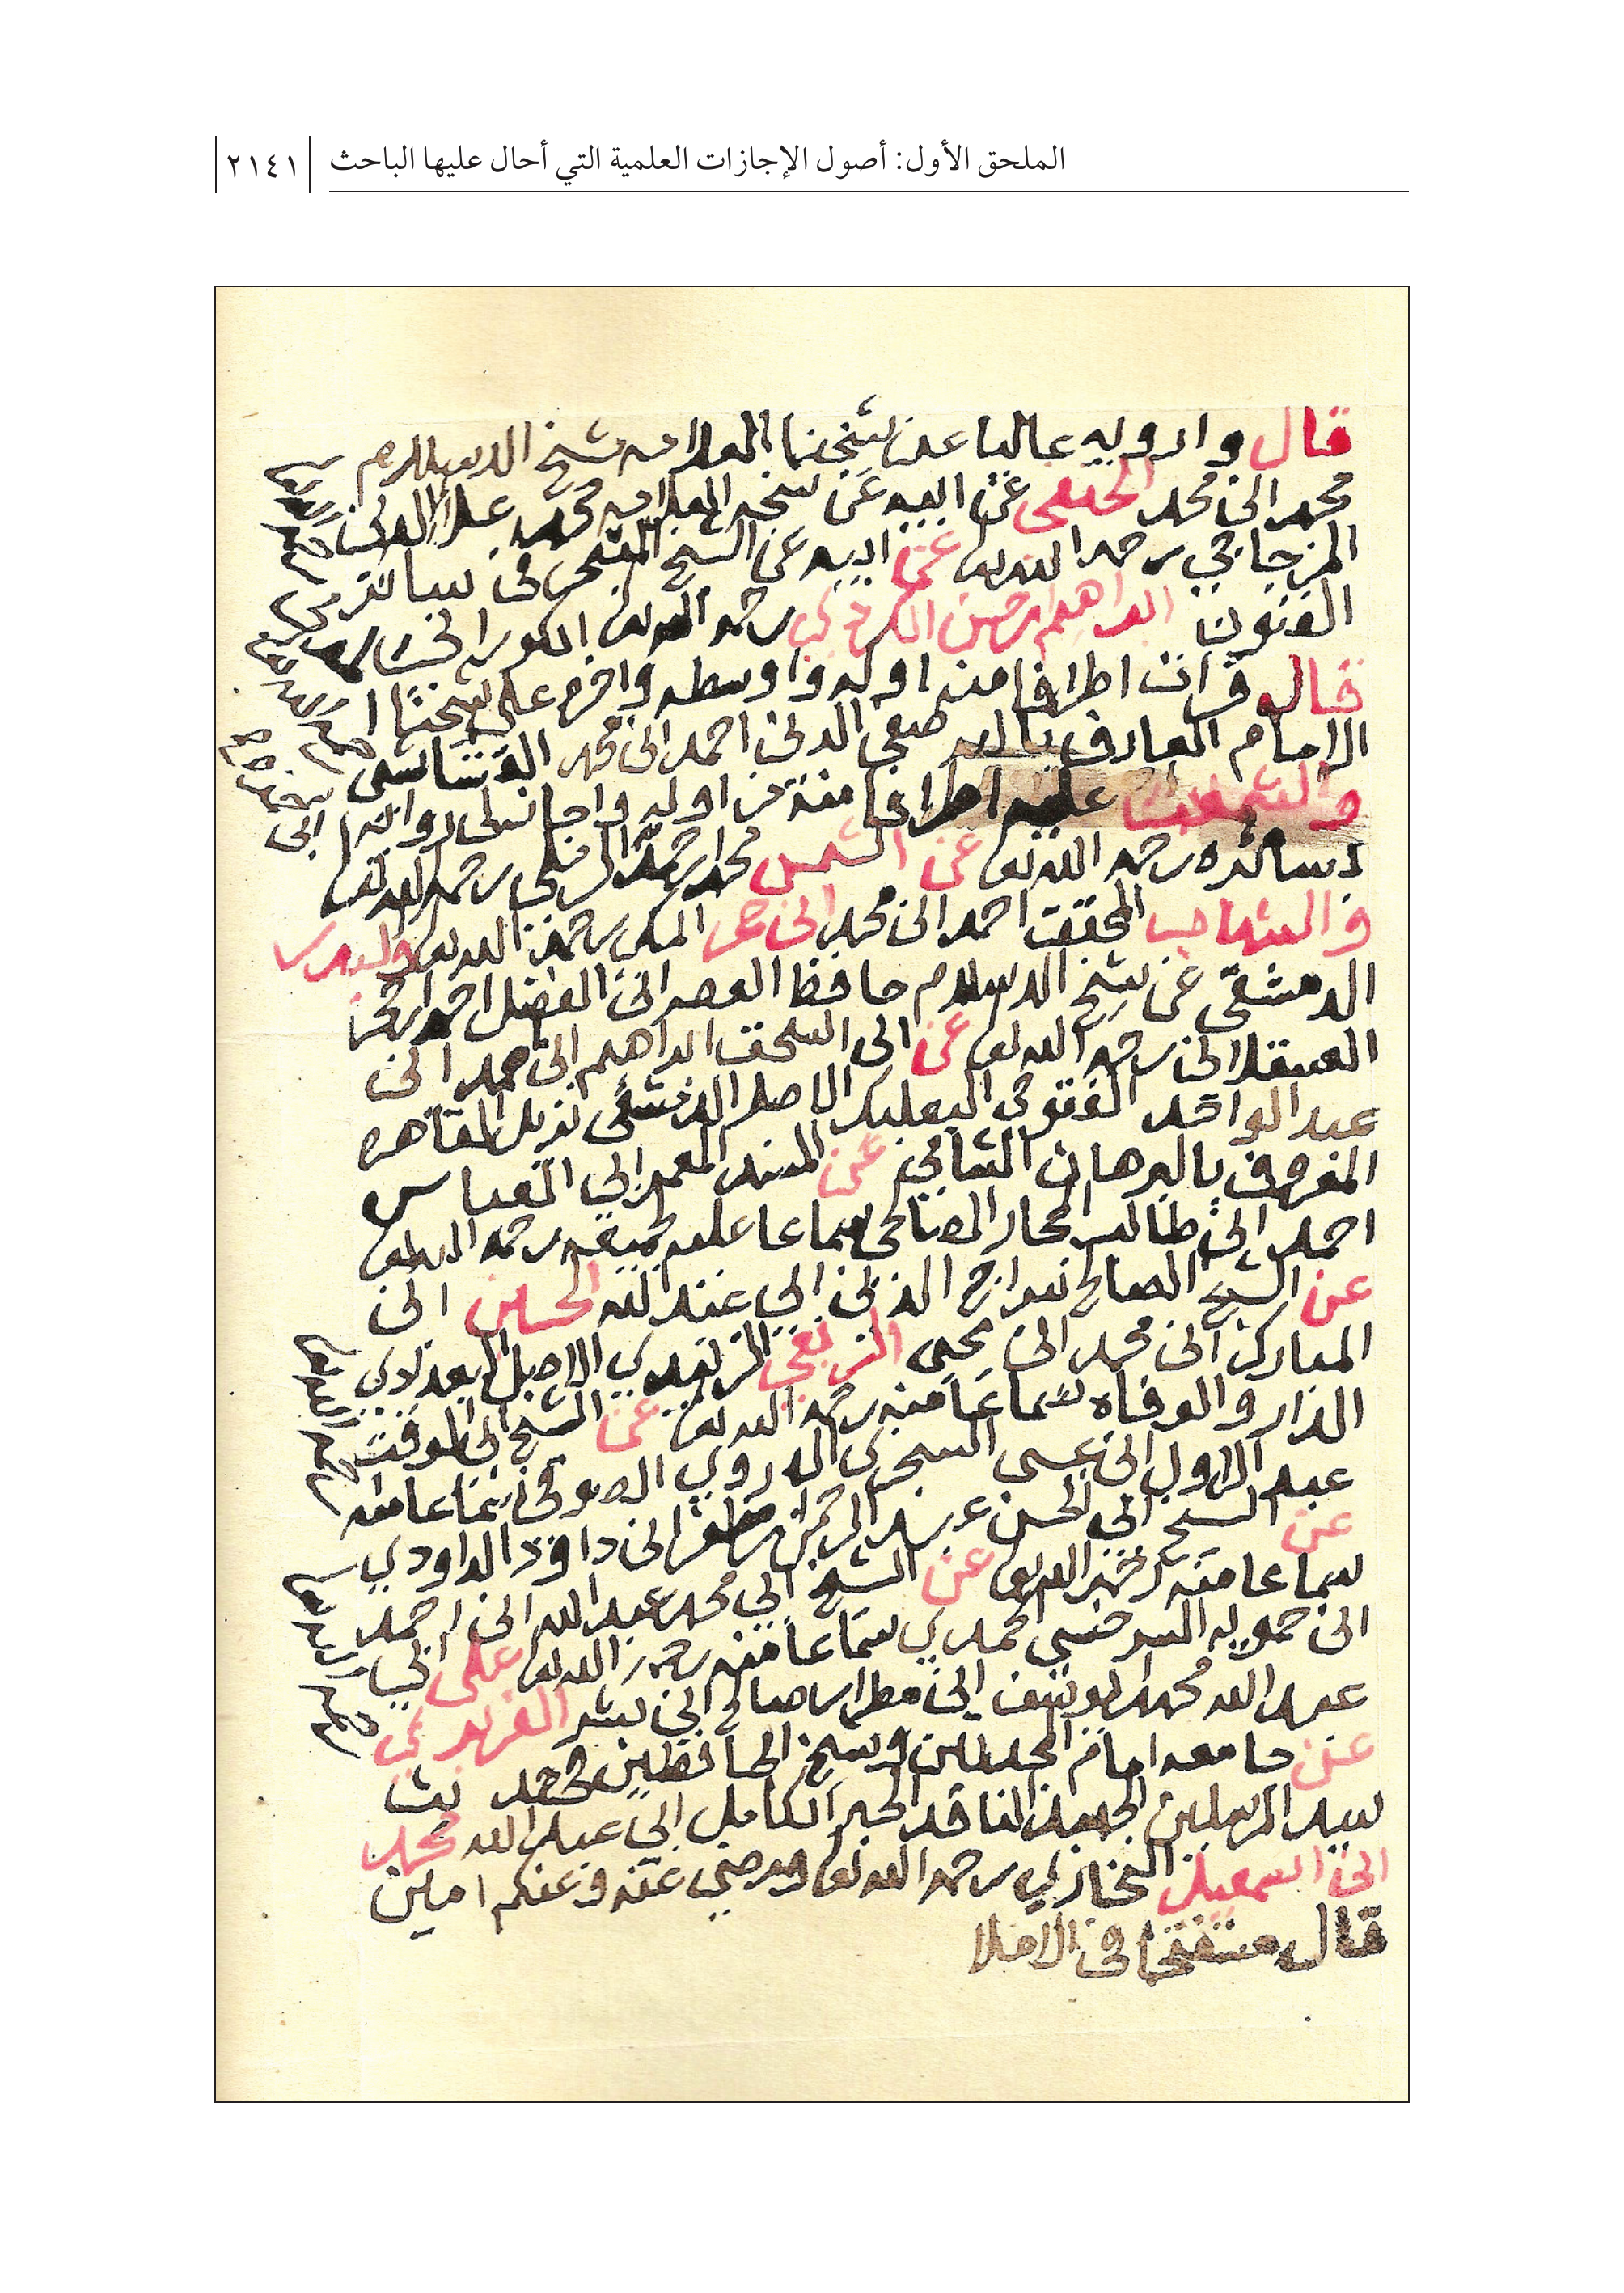 الملحق الأول: أصول الإجازات العلمية التي أحال عليها الباحث
٢١٤١
قال وارويه عاليا عن شيخنا العلامه شيخ الاسلام
محمد ابن محمد عن ابيه عن شيخه العلامه محمد علا الدين
المزجاجي رحمه الله تعالى عن ابيه عن الشيخ المتبحر في سائر
الفنون ابراهيم بن حسن الكردي رحمه الله تعالى الكوراني
قال قرات اطرافا منه اوله واوسطه واخره على شيخنا
الامام العارف بالله صفي الدين احمد ابن محمد القشاشي
عليه اطرافا منه من اوله واجازلي رواية
رحمه الله تعالى عن الشمس محمد بن احمد الرملي رحمه الله تعالى
والشهاب المحقق احمد ابن محمد ابن حجر المكي رحمه الله تعالى والبدر
الدمشقي عن شيخ الاسلام حافظ العصر ابن الفضل احمد بن حجر
العسقلاني رحمه الله تعالى عن ابي اسحق ابراهيم ابن احمد ابن
عبد الواحد التنوخي البعلبكي الاصل الدمشقي نزيل القاهره
المعروف بالبرهان الشامي عن المسند المعمر ابي العباس
احمد ابن طالب الحجار الصالحي سماعا عليه لجميعه رحمه الله تعالى
عن الشيخ الصالح سراج الدين ابي عبد الله الحسين ابن
المبارك ابن محمد ابن يحيى الزبيدي الاصل البغدادي
الدار والوفاه سماعا منه رحمه الله تعالى عن الشيخ ابي الوقت
عبد الاول ابن عيسى السجزي الهروي الصوفي سماعا منه
عن الشيخ ابي الحسن عبد الرحمن بن مظفر ابن داوود الداودي
سماعا منه رحمه الله تعالى عن الشيخ ابي محمد عبد الله ابن احمد
ابن حمويه السرخسي سماعا منه رحمه الله تعالى على ابي
عبد الله محمد بن يوسف ابن مطر بن صالح ابن بشر الفربري
عن جامعه امام المحدثين وشيخ الحافظين
سيد المرسلين الجهبذ الناقد الحبر الكامل ابي عبد الله محمد
ابن اسمعيل البخاري رحمه الله تعالى ورضي عنه وعنكم امين
قال مستفتحا في الاملا